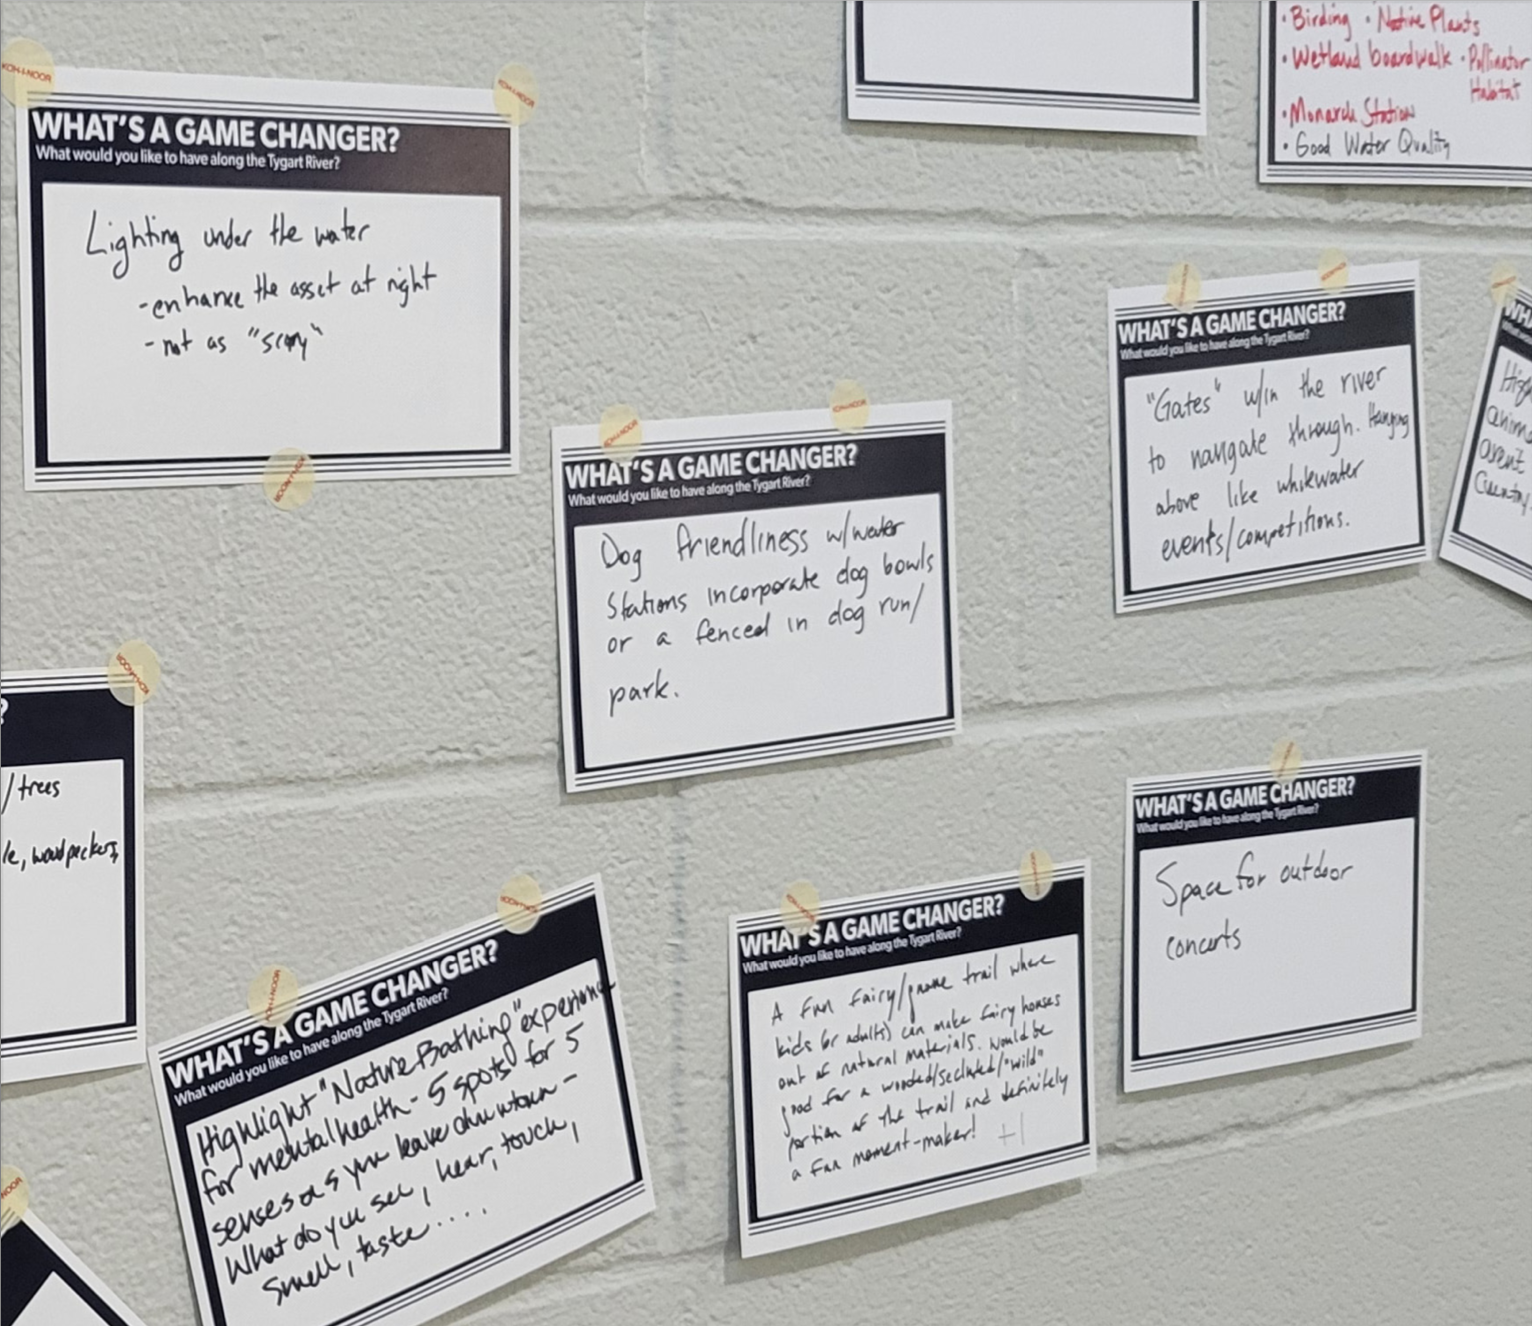 • Birding • Native Plants
• Wetland boardwalk • Pollinator
Habitat
• Monarch Station
• Good Water Quality
KOH-I-NOOR
KOH-I-NOOR
WHAT'S A GAME CHANGER?
What would you like to have along the Tygart River?
Lighting under the water
- enhance the asset at night
- not as "scary"
KOH-I-NOOR
WHAT'S A GAME CHANGER?
What would you like to have along the Tygart River?
"Gates" w/in the river
to navigate through. Hanging
above like whitewater
events/competitions.
KOH-I-NOOR
KOH-I-NOOR
WHAT'S A GAME CHANGER?
What would you like to have along the Tygart River?
Dog friendliness w/water
stations incorporate dog bowls
or a fenced in dog run/
park.
KOH-I-NOOR
?
/trees
woodpeckers,
WHAT'S A GAME CHANGER?
What would you like to have along the Tygart River?
Space for outdoor
concerts
KOH-I-NOOR
KOH-I-NOOR
WHAT'S A GAME CHANGER?
What would you like to have along the Tygart River?
Highlight "Nature Bathing" experience
for mental health - 5 spots for 5
senses as you leave downtown -
What do you see, hear, touch,
smell, taste....
KOH-I-NOOR
WHAT'S A GAME CHANGER?
What would you like to have along the Tygart River?
A fun fairy/gnome trail where
kids (or adults) can make fairy houses
out of natural materials. Would be
good for a wooded/secluded/"wild"
portion of the trail and definitely
a fun moment-maker! +1